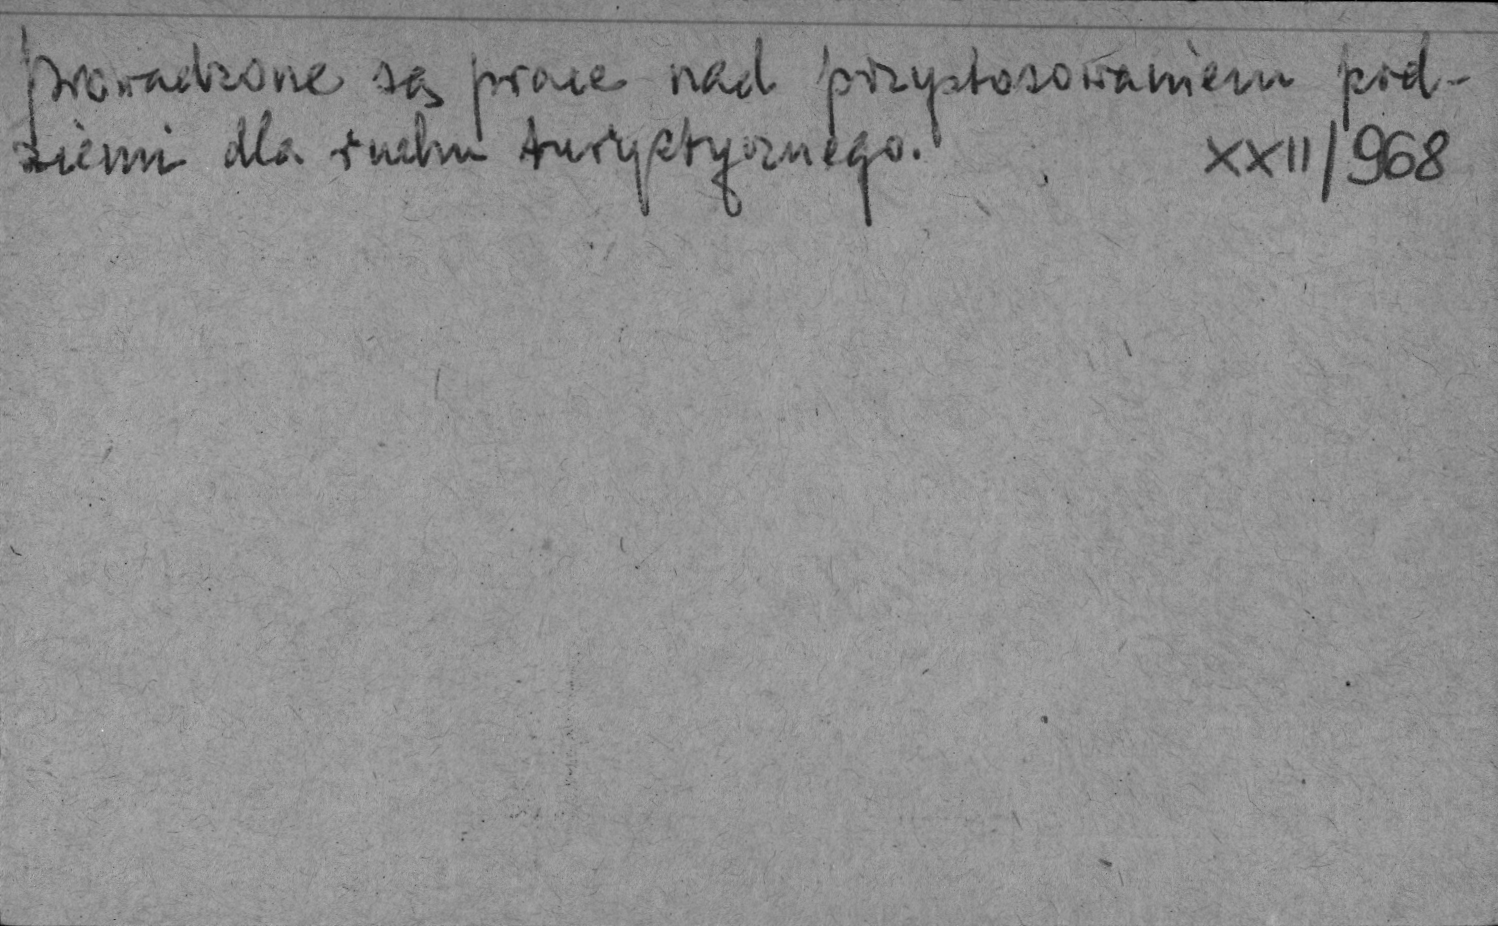 prowadzone są prace nad przystosowaniem pod-
ziemi dla ruchu turystycznego. XXII/968